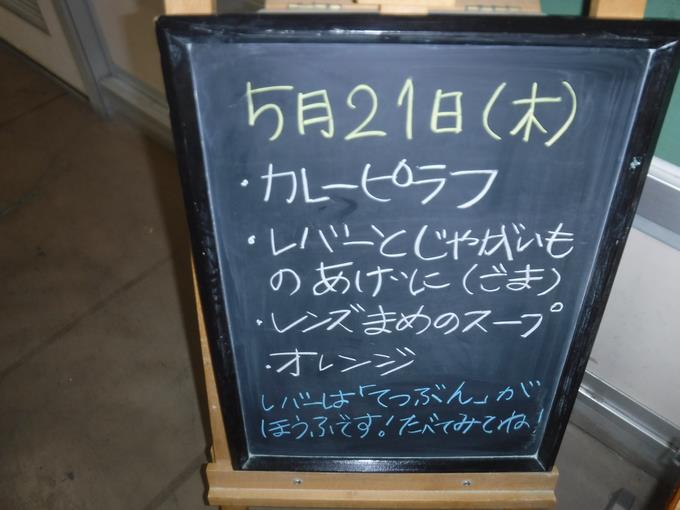 5月21日(木)
・カレーピラフ
・レバーとじゃがいも
のあげに(ごま)
・レンズまめのスープ
・オレンジ
レバーは「てつぶん」が
ほうふです!たべてみてね!